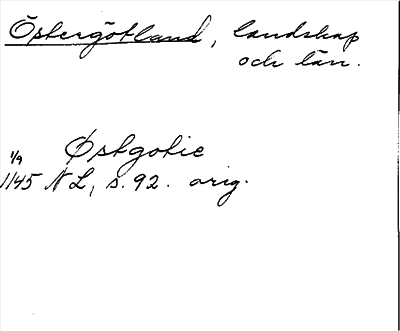 Östergötland, landskap
och län.
Østgotie
1/9
1145 NL, s. 92. orig.